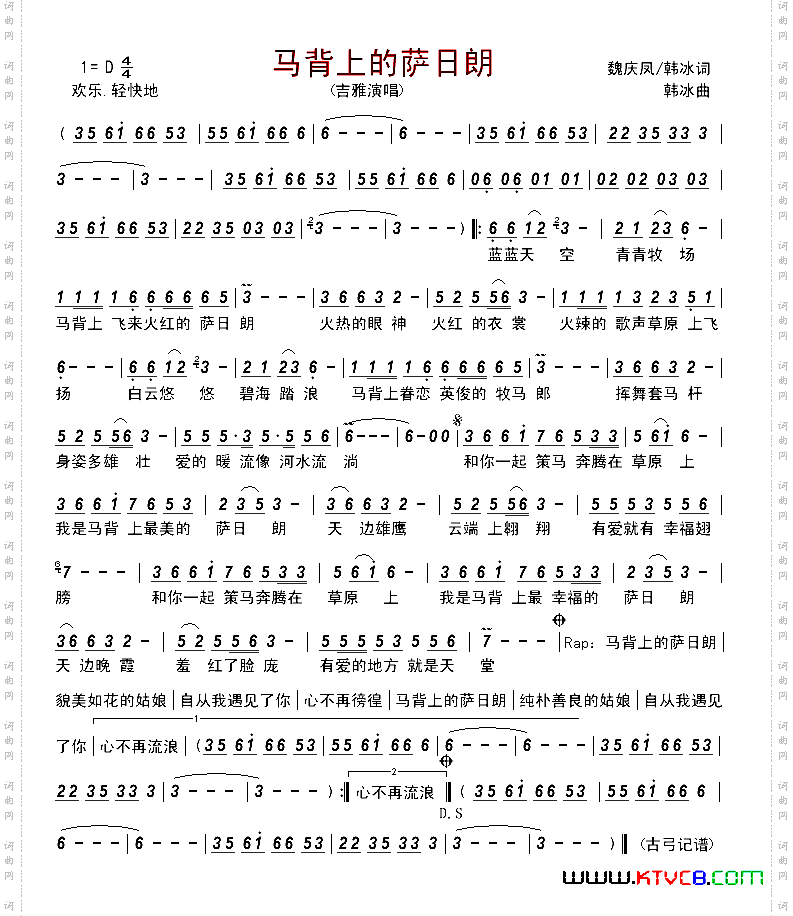 马背上的萨日朗
1=D 4/4
魏庆凤/韩冰词
欢乐.轻快地
(吉雅演唱)
韩冰曲
( 35 61 66 53 | 55 61 66 6 | 6 - - - | 6 - - - | 35 61 66 53 | 22 35 33 3 |
3 - - - | 3 - - - | 35 61 66 53 | 55 61 66 6 | 06 06 01 01 | 02 02 03 03 |
35 61 66 53 | 22 35 03 03 | 3 - - - | 3 - - - ) ‖: 6 6 12 3 - | 21 23 6 - |
蓝蓝天 空 青青牧 场
1 11 1 6 6 66 5 | 3 - - - | 36 63 2 - | 52 556 3 - | 1 11 1 6 123 51 |
马背上 飞来火红的 萨日 朗 火热的眼 神 火红 的衣 裳 火辣的 歌声草原 上飞
6 - - - | 66 12 3 - | 21 23 6 - | 1 11 1 6 6 66 5 | 3 - - - | 36 63 2 - |
扬 白云悠 悠 碧海 踏 浪 马背上眷恋 英俊的 牧马 郎 挥舞套马 杆
52 556 3 - | 55 5·3 5·5 56 | 6 - - - | 6 - 0 0 | 36 61 76 533 | 561 6 - |
身姿多雄 壮 爱的 暖 流像 河水流 淌 和你一起 策马 奔腾在 草原 上
36 61 76 53 | 2 35 3 - | 36 63 2 - | 52 556 3 - | 52 553 53 556 |
我是马背 上最美的 萨日 朗 天 边雄鹰 云端 上翱 翔 有爱就有 幸福翅
7 - - - | 36 61 76 533 | 561 6 - | 36 61 76 533 | 2 35 3 - |
膀 和你一起 策马奔腾在 草原 上 我是马背 上最 幸福的 萨日 朗
36 63 2 - | 52 556 3 - | 52 553 5 56 | 7 - - - | Rap: 马背上的萨日朗 |
天 边晚 霞 羞 红了脸 庞 有爱的地方 就是天 堂
貌美如花的姑娘 | 自从我遇见了你 | 心不再彷徨 | 马背上的萨日朗 | 纯朴善良的姑娘 | 自从我遇见
1
了你 | 心不再流浪 | (35 61 66 53 | 55 61 66 6 | 6 - - - | 6 - - - | 35 61 66 53 |
2
22 35 33 3 | 3 - - - | 3 - - - ) :‖ 心不再流浪 ‖ ( 35 61 66 53 | 55 61 66 6 |
D.S
6 - - - | 6 - - - | 35 61 66 53 | 22 35 33 3 | 3 - - - | 3 - - - ) ‖ (古弓记谱)
www.KTVC8.com
词曲网